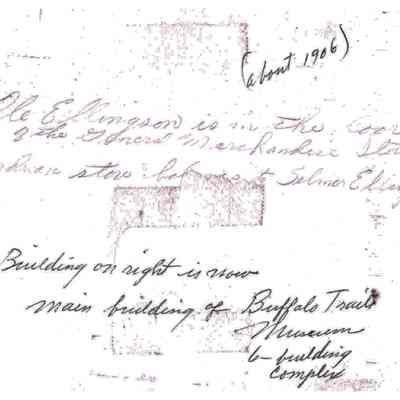 (about 1906)
Ole Ellingson is in the door
of the General Merchandise Sto
store Selmer Elling
Building on right is now
main building of Buffalo Trails
Museum
6-building
complex